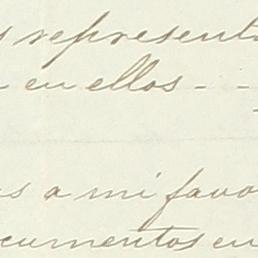 s represent
en ellos - -
s a mi favo
cumentos en